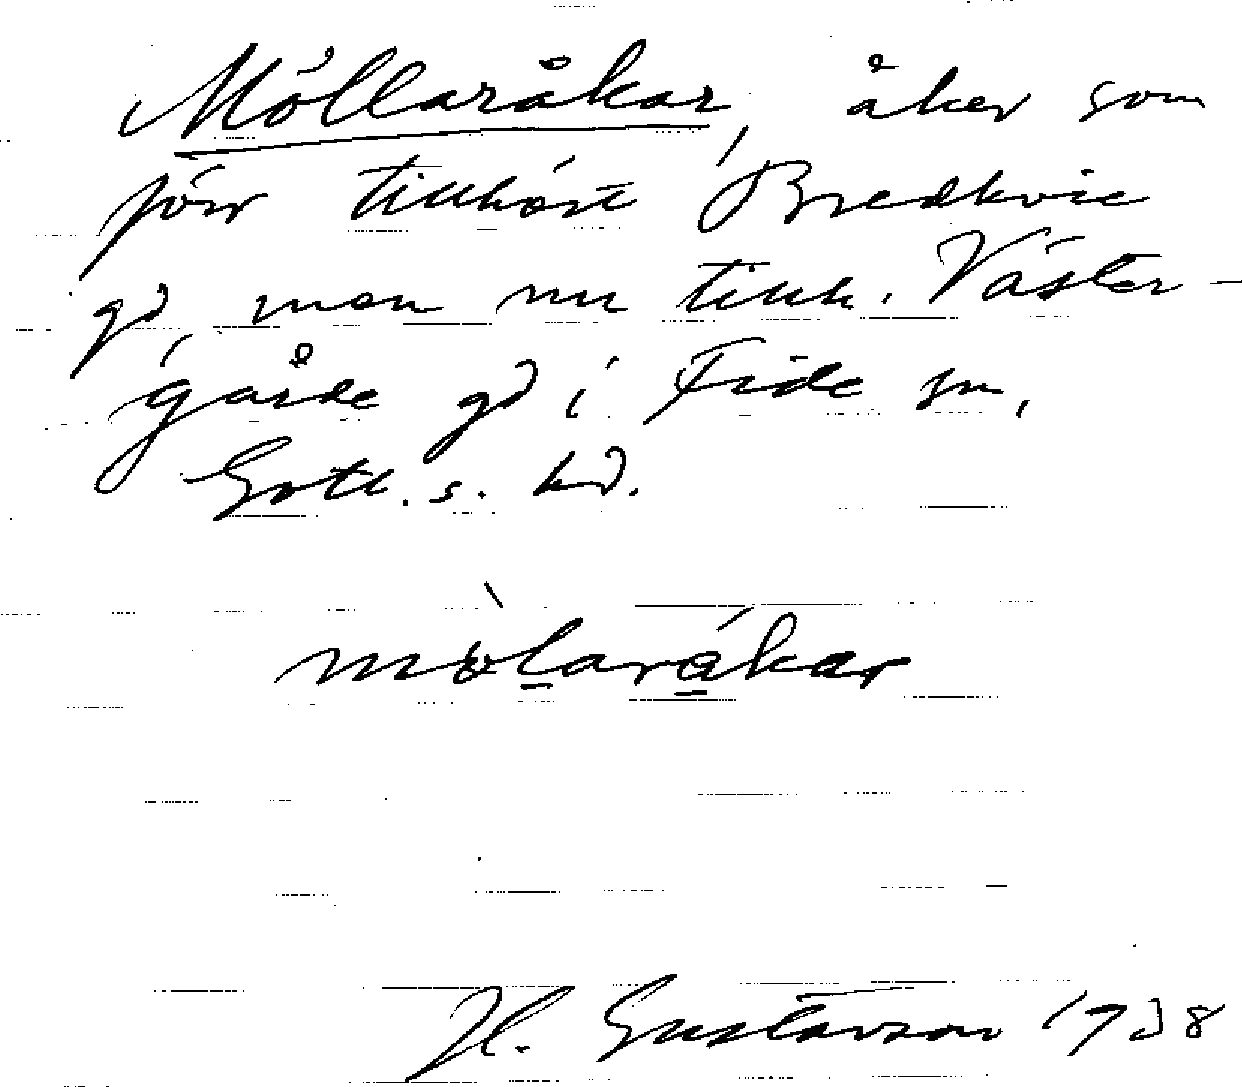 Möllaråkar, åker som
förr tillhört Bredkvie
gd, men nu tillh. Väster-
gårde gd i Fide sn,
Gotl. s. hd.
mòlarákar
H. Gustavson 1938